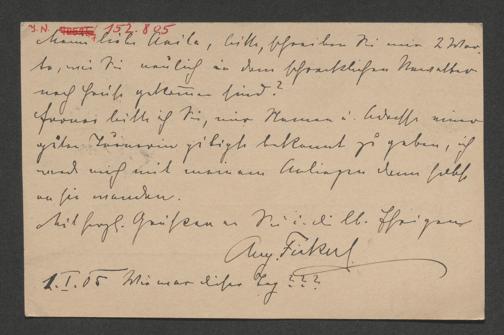 J.N. 152.805
Meine liebe Kaila, bitte, schreiben Sie mir 2 Wor-
te, wie Sie neulich in dem schrecklichen Unwetter
nach Hause gekommen sind?
Ferner bitte ich Sie, mir Namen u. Adresse einer
guten Trainerin gütigst bekannt zu geben, ich
werd mich mit meinem Anliegen dann selbst
an sie wenden.
Mit herzl. Grüßen an Sie u. die lb. Ihrigen
Aug. Fickert
1. I. 05 Wie war dieser Tag ???